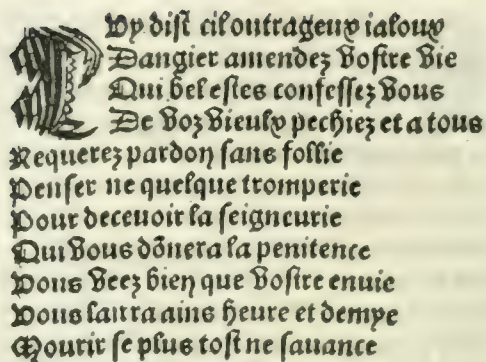 LUy dist cil outrageux ialoux
Dangier amendez vostre vie
Qui bel estes confessez vous
De voz vieulx pechiez et a tous
Requerez pardon sans follie
Penser ne quelque tromperie
Pour deceuoir la seigneurie
Qui vous dōnera la penitence
Vous veez bien que vostre enuie
Vous laitra ains heure et demye
Mourir se plus tost ne sauance